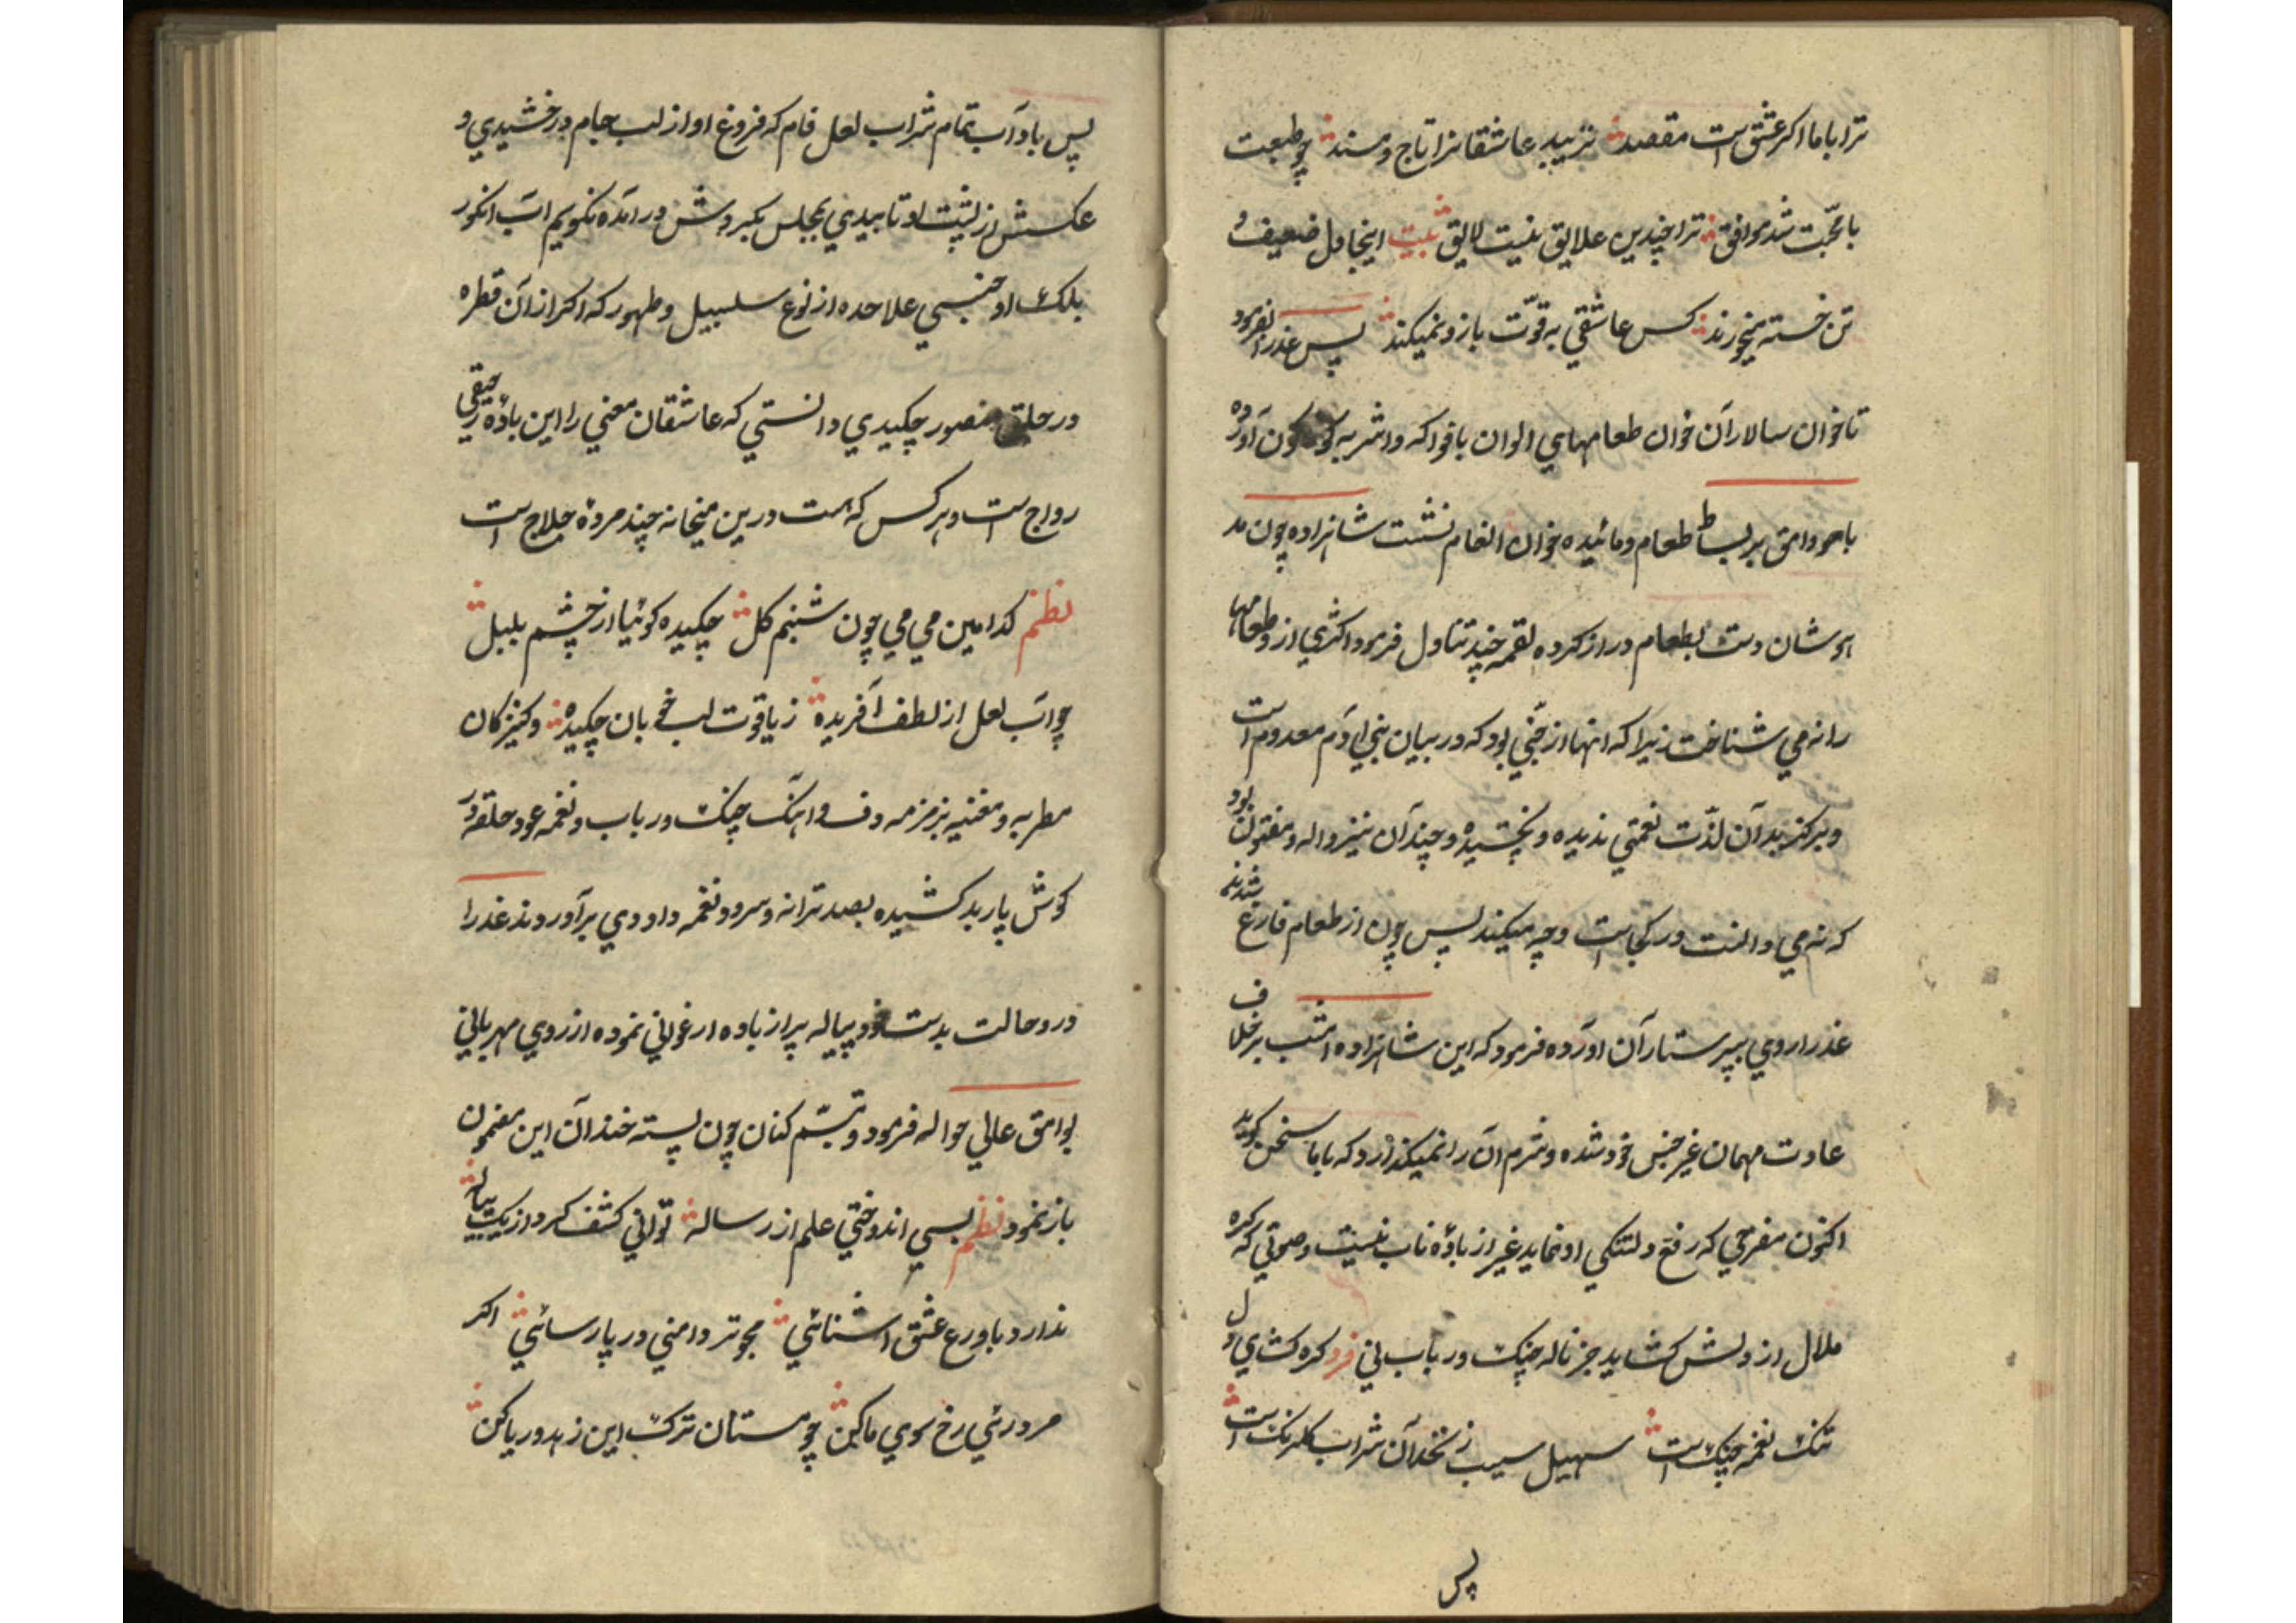 ترا باما اکر عشق است مقصد نزیبد عاشقانرا تاج و مسند چو طبعت
با محبّت شد موافق ترا چندین علایق نیست لایق بیت اینجا دل ضعیف و
تن خسته میخرند کس عاشقی به قوّت بازو نمیکند پس عذرا بفرمود
تا خوان سالاران خوان طعامهای الوان با فواکه و اشربه کوناکون آورده
با وامق بر بساط طعام و مائیده خوان انعام نشست شاهزاده چون مد
هوشان دست بطعام دراز کرده لقمه چند تناول فرمود اکثری از و طعامها
را نه می شناخت زیرا که انها از جنّی بود که در بیان بنی ادم معدوم است
و هرکز بدان لذّت نعمتی ندیده و نچشیده و چندان نیز واله و مفتون بود
که نه می دانست در کجاست و چه میکند پس چون از طعام فارغ شدند
عذرا روی بپرستاران اورده فرمود که این شاهزاده امشب برخلاف
عادت مهمان غیر جنس خود شده و شرم ان را نمیکذارد که با ما سخن کوید
اکنون مفرحی که رفع دلتنکی او نماید غیر از بادۀ ناب نیست و صوتی که کره
ملال از دلش کشاید جز ناله چنک و رباب نی فرد کره کشای دل
تنک نغمه چنک است سهیل سیب زنخدان شراب کلرنک است
پس
پس باد آب تمام شراب لعل فام که فروغ او از لب جام درخشیدی و
عکسش از پشت او تابیدی بمجلس درآمده نکویم اب انکور
بلک او جنسی علاحده از نوع سلسبیل و طهور که اکر از آن قطره
در حلق منصور چکیدی دانستی که عاشقان معنی را این بادۀ رحیقی
رواج است و هرکس که هست درین میخانه چند مردۀ حلاج است
نظم کدامین می می چون شبنم کل چکیده کوئیا از چشم بلبل
چو اب لعل از لطف آفریده ز یاقوت لب خوبان چکیده و کنیزکان
مطربه و مغنیه بزمزمه دف و اهنک چنک و رباب و نغمه عود حلقه در
کوش باربد کشیده بصد ترانه و سرود نغمه داودی برآوردند عذرا
درو حالت بدست خود پیاله پر از باده ارغوانی نموده از روی مهربانی
بوامق عالی حواله فرمود و تبسّم کنان چون پسته خندان این مضمون
باز نمود نظم بسی اندوختی علم از رساله توانی کشف کرد از یک پیاله
ندارد با ورع عشق اشنائی مجو تر دامنی در پارسائی اکر
مرد رئی رخ سوی ما کن چو مستان ترک این زهد و ریا کن